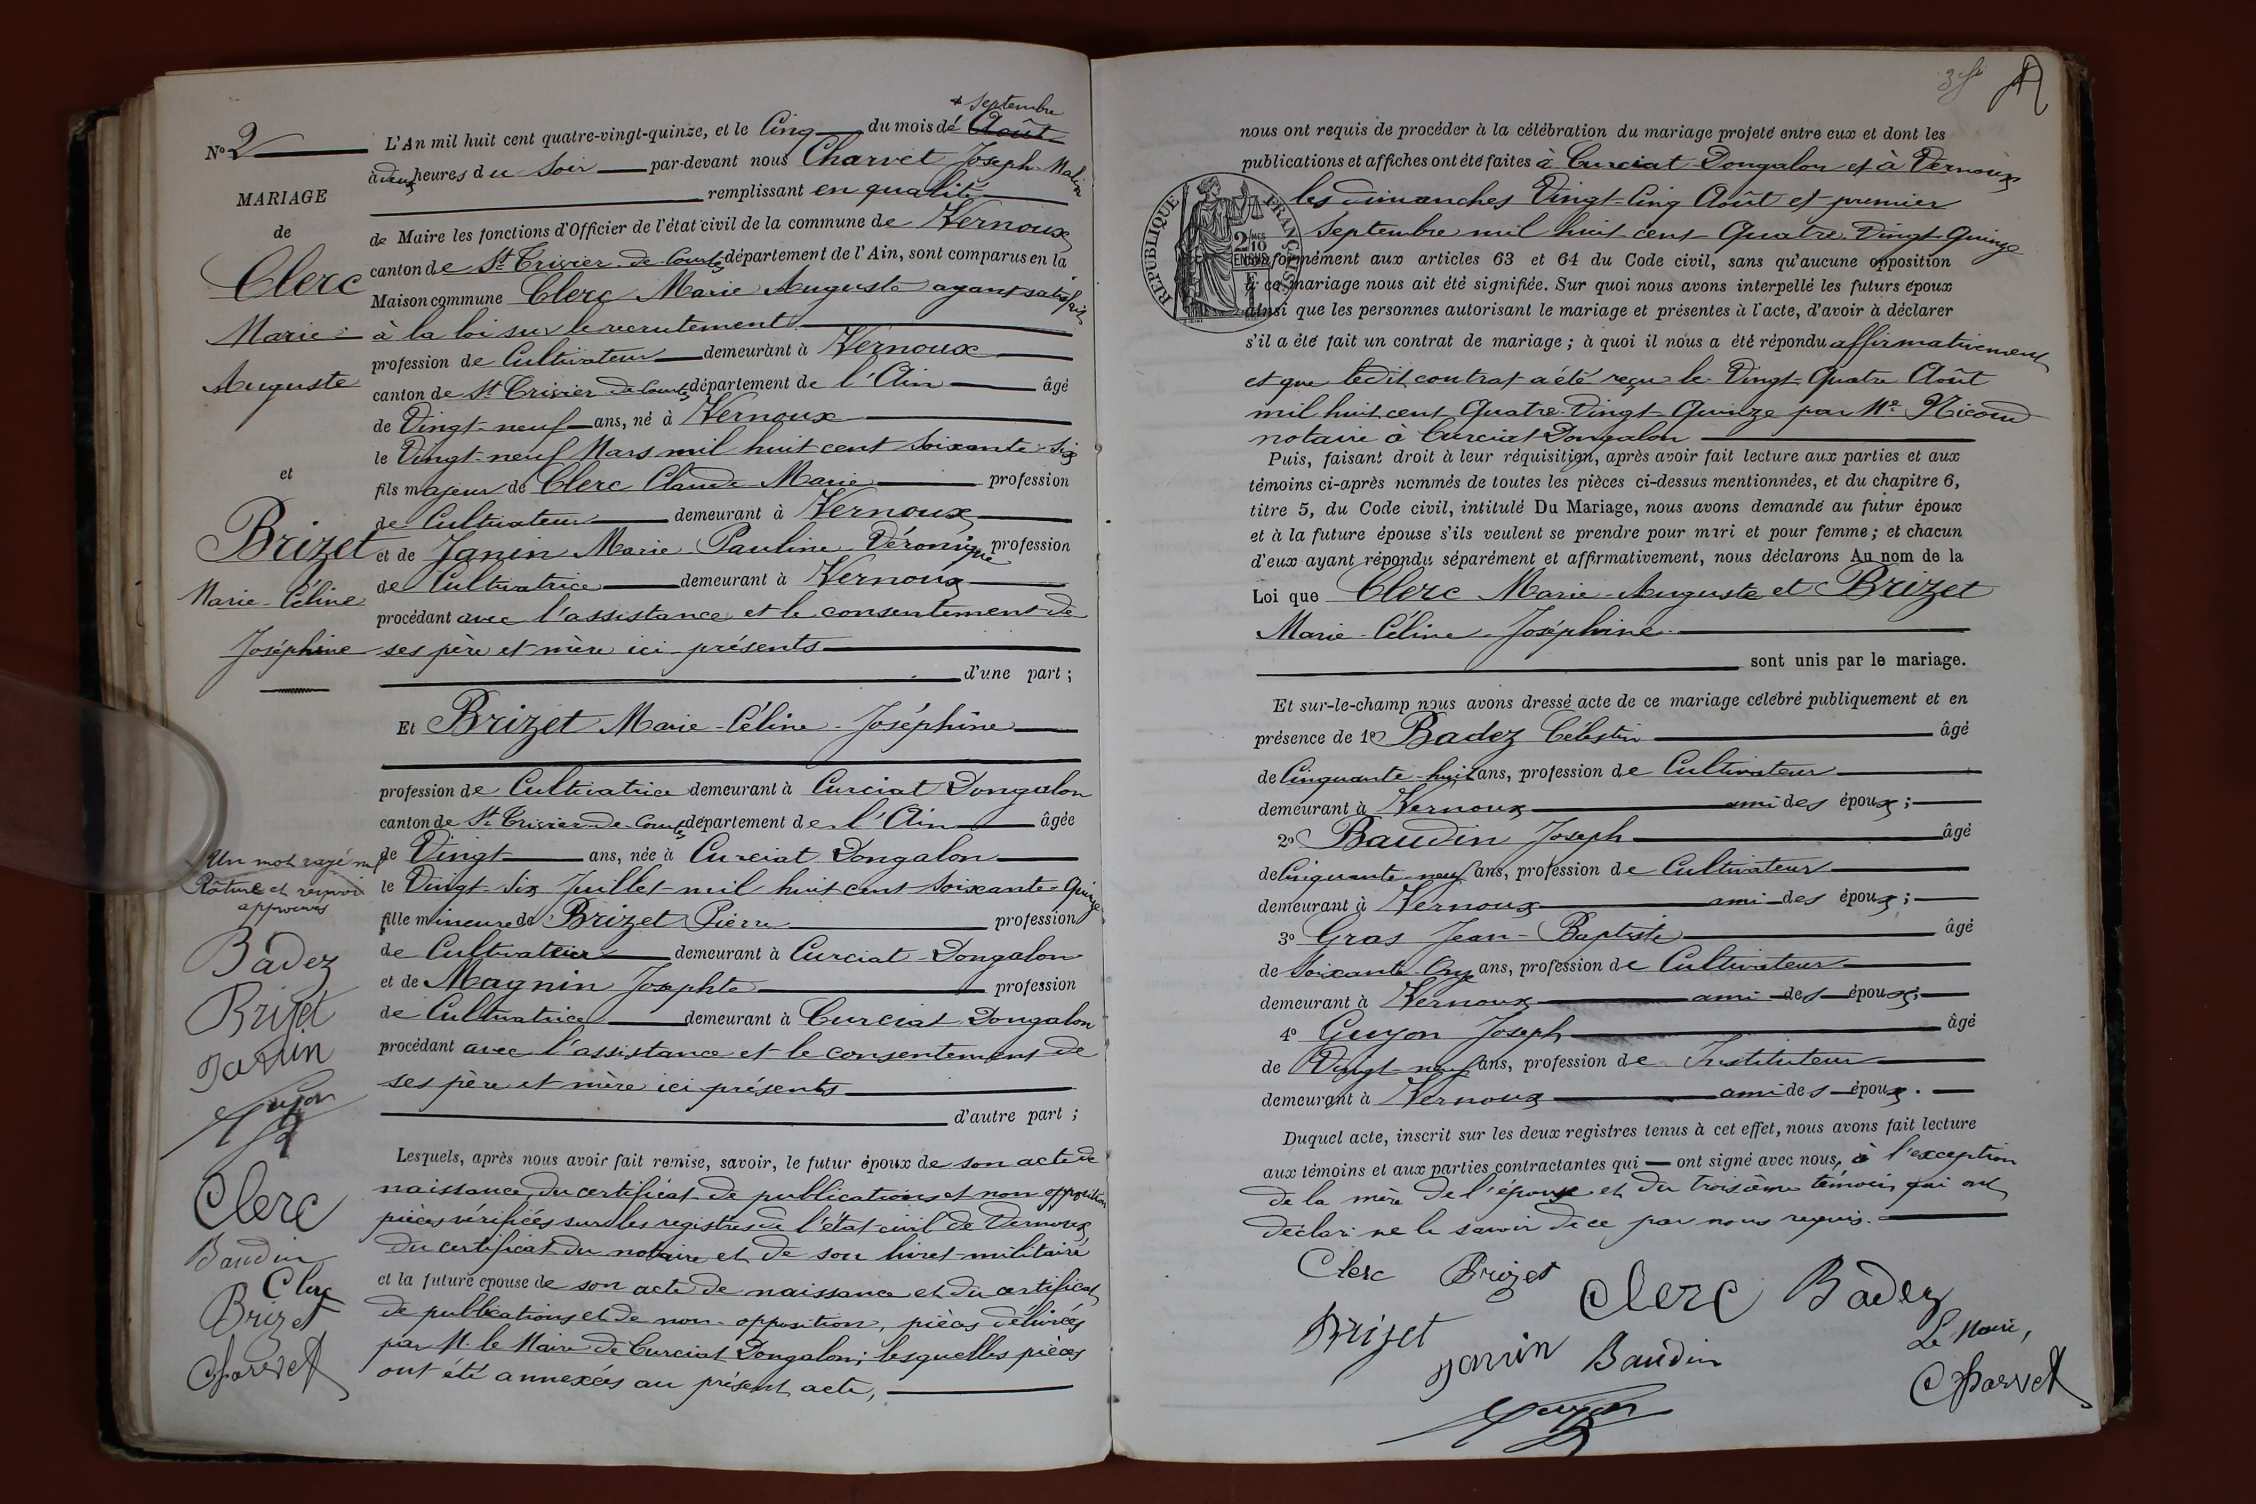 + Septembre
N° 2 L'An mil huit cent quatre-vingt-quinze, et le Cinq du mois de Août
à deux heures du Soir par-devant nous Charvet Joseph Malin
remplissant en qualité
MARIAGE
de
Clerc
Marie-
Auguste
et
Brizet
Marie-Céline
Joséphine
de Maire les fonctions d'Officier de l'état civil de la commune de Vernoux
canton de St Trivier-de-Courtes département de l'Ain, sont comparus en la
Maison commune Clerc Marie Auguste ayant satisfait
à la loi sur le recrutement
profession de Cultivateur demeurant à Vernoux
canton de St Trivier de Courtes département de l'Ain âgé
de Vingt-neuf ans, né à Vernoux
le Vingt-neuf Mars mil huit cent Soixante-Six
fils majeur de Clerc Claude Marie profession
de Cultivateur demeurant à Vernoux
et de Janin Marie Pauline Véronique profession
de Cultivatrice demeurant à Vernoux
procédant avec l'assistance et le consentement de
ses père et mère ici présents
d'une part ;
Et Brizet Marie-Céline-Joséphine
profession de Cultivatrice demeurant à Curciat Dongalon
canton de St Trivier-de-Courtes département de l'Ain âgée
de Vingt ans, née à Curciat Dongalon
le Vingt-Six Juillet mil huit cent Soixante-Quinze
fille mineure de Brizet Pierre profession
de Cultivateur demeurant à Curciat-Dongalon
et de Magnin Josephte profession
de Cultivatrice demeurant à Curciat Dongalon
procédant avec l'assistance et le consentement de
ses père et mère ici présents
d'autre part ;
Lesquels, après nous avoir fait remise, savoir, le futur époux de son acte de
naissance, du certificat de publications et non opposition
pièces vérifiées sur les registres de l'état civil de Vernoux
du certificat du notaire et de son livret militaire
et la future épouse de son acte de naissance et du certificat
de publications et de non-opposition, pièces délivrées
par M. le Maire de Curciat Dongalon ; lesquelles pièces
ont été annexées au présent acte,
Un mot rayé nul
Rature et renvoi
approuvés
Badez
Brizet
Janin
Guyon
Clerc
Baudin
Clerc
Brizet
Charvet
nous ont requis de procéder à la célébration du mariage projeté entre eux et dont les
publications et affiches ont été faites à Curciat-Dongalon et à Vernoux
les dimanches Vingt-Cinq Août et premier
Septembre mil huit cent Quatre-Vingt-Quinze
RÉPUBLIQUE FRANÇAISE
2/10 MES
EN SUS
conformément aux articles 63 et 64 du Code civil, sans qu'aucune opposition
à ce mariage nous ait été signifiée. Sur quoi nous avons interpellé les futurs époux
ainsi que les personnes autorisant le mariage et présentes à l'acte, d'avoir à déclarer
s'il a été fait un contrat de mariage ; à quoi il nous a été répondu affirmativement
et que ledit contrat a été reçu le Vingt-Quatre Août
mil huit cent Quatre-Vingt-Quinze par Me Nicoud
notaire à Curciat Dongalon
Puis, faisant droit à leur réquisition, après avoir fait lecture aux parties et aux
témoins ci-après nommés de toutes les pièces ci-dessus mentionnées, et du chapitre 6,
titre 5, du Code civil, intitulé Du Mariage, nous avons demandé au futur époux
et à la future épouse s'ils veulent se prendre pour mari et pour femme ; et chacun
d'eux ayant répondu séparément et affirmativement, nous déclarons Au nom de la
Loi que Clerc Marie-Auguste et Brizet
Marie-Céline-Joséphine
sont unis par le mariage.
Et sur-le-champ nous avons dressé acte de ce mariage célébré publiquement et en
présence de 1° Badez Célestin âgé
de Cinquante-huit ans, profession de Cultivateur
demeurant à Vernoux ami des époux ;
2° Baudin Joseph âgé
de Cinquante-neuf ans, profession de Cultivateur
demeurant à Vernoux ami des époux ;
3° Gras Jean-Baptiste âgé
de Soixante-Onze ans, profession de Cultivateur
demeurant à Vernoux ami des époux ;
4° Guyon Joseph âgé
de Vingt-neuf ans, profession de Instituteur
demeurant à Vernoux ami des époux.
Duquel acte, inscrit sur les deux registres tenus à cet effet, nous avons fait lecture
aux témoins et aux parties contractantes qui ont signé avec nous, à l'exception
de la mère de l'épouse et du troisième témoin qui ont
déclaré ne le savoir de ce par nous requis.
Clerc Brizet Clerc Badez
Brizet Janin Baudin Le Maire,
Guyon Charvet